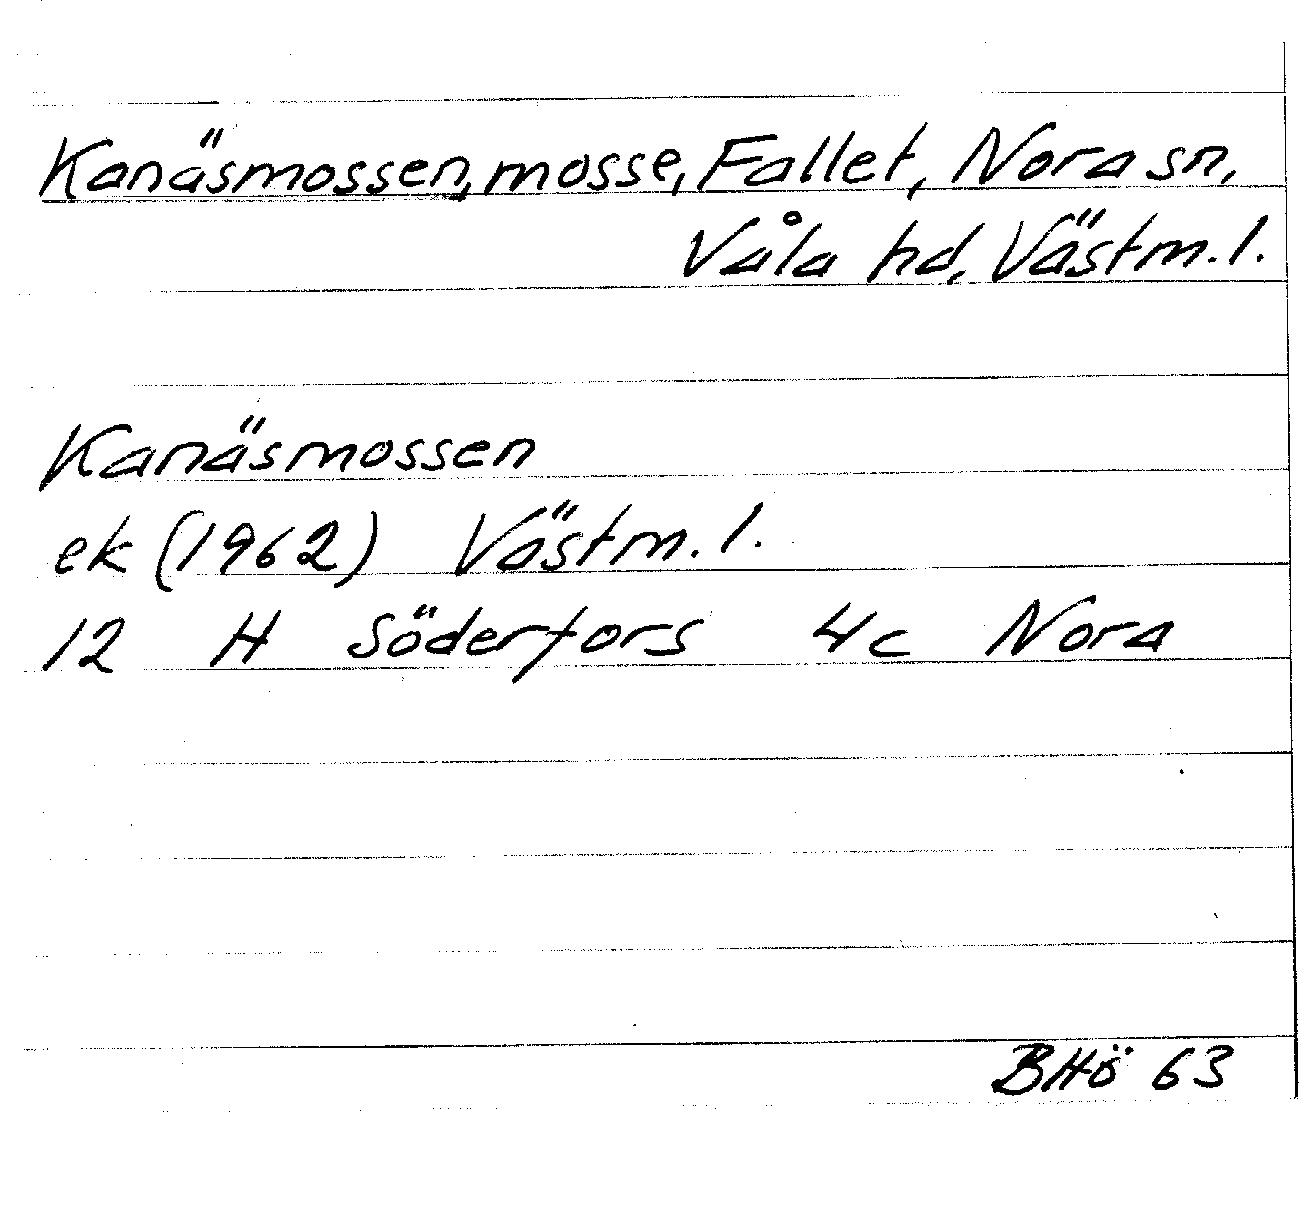 Kanäsmossen, mosse, Fallet, Nora sn,
Våla hd, Västm. l.
Kanäsmossen
ek (1962) Västm. l.
12 H Söderfors 4c Nora
BHö 63